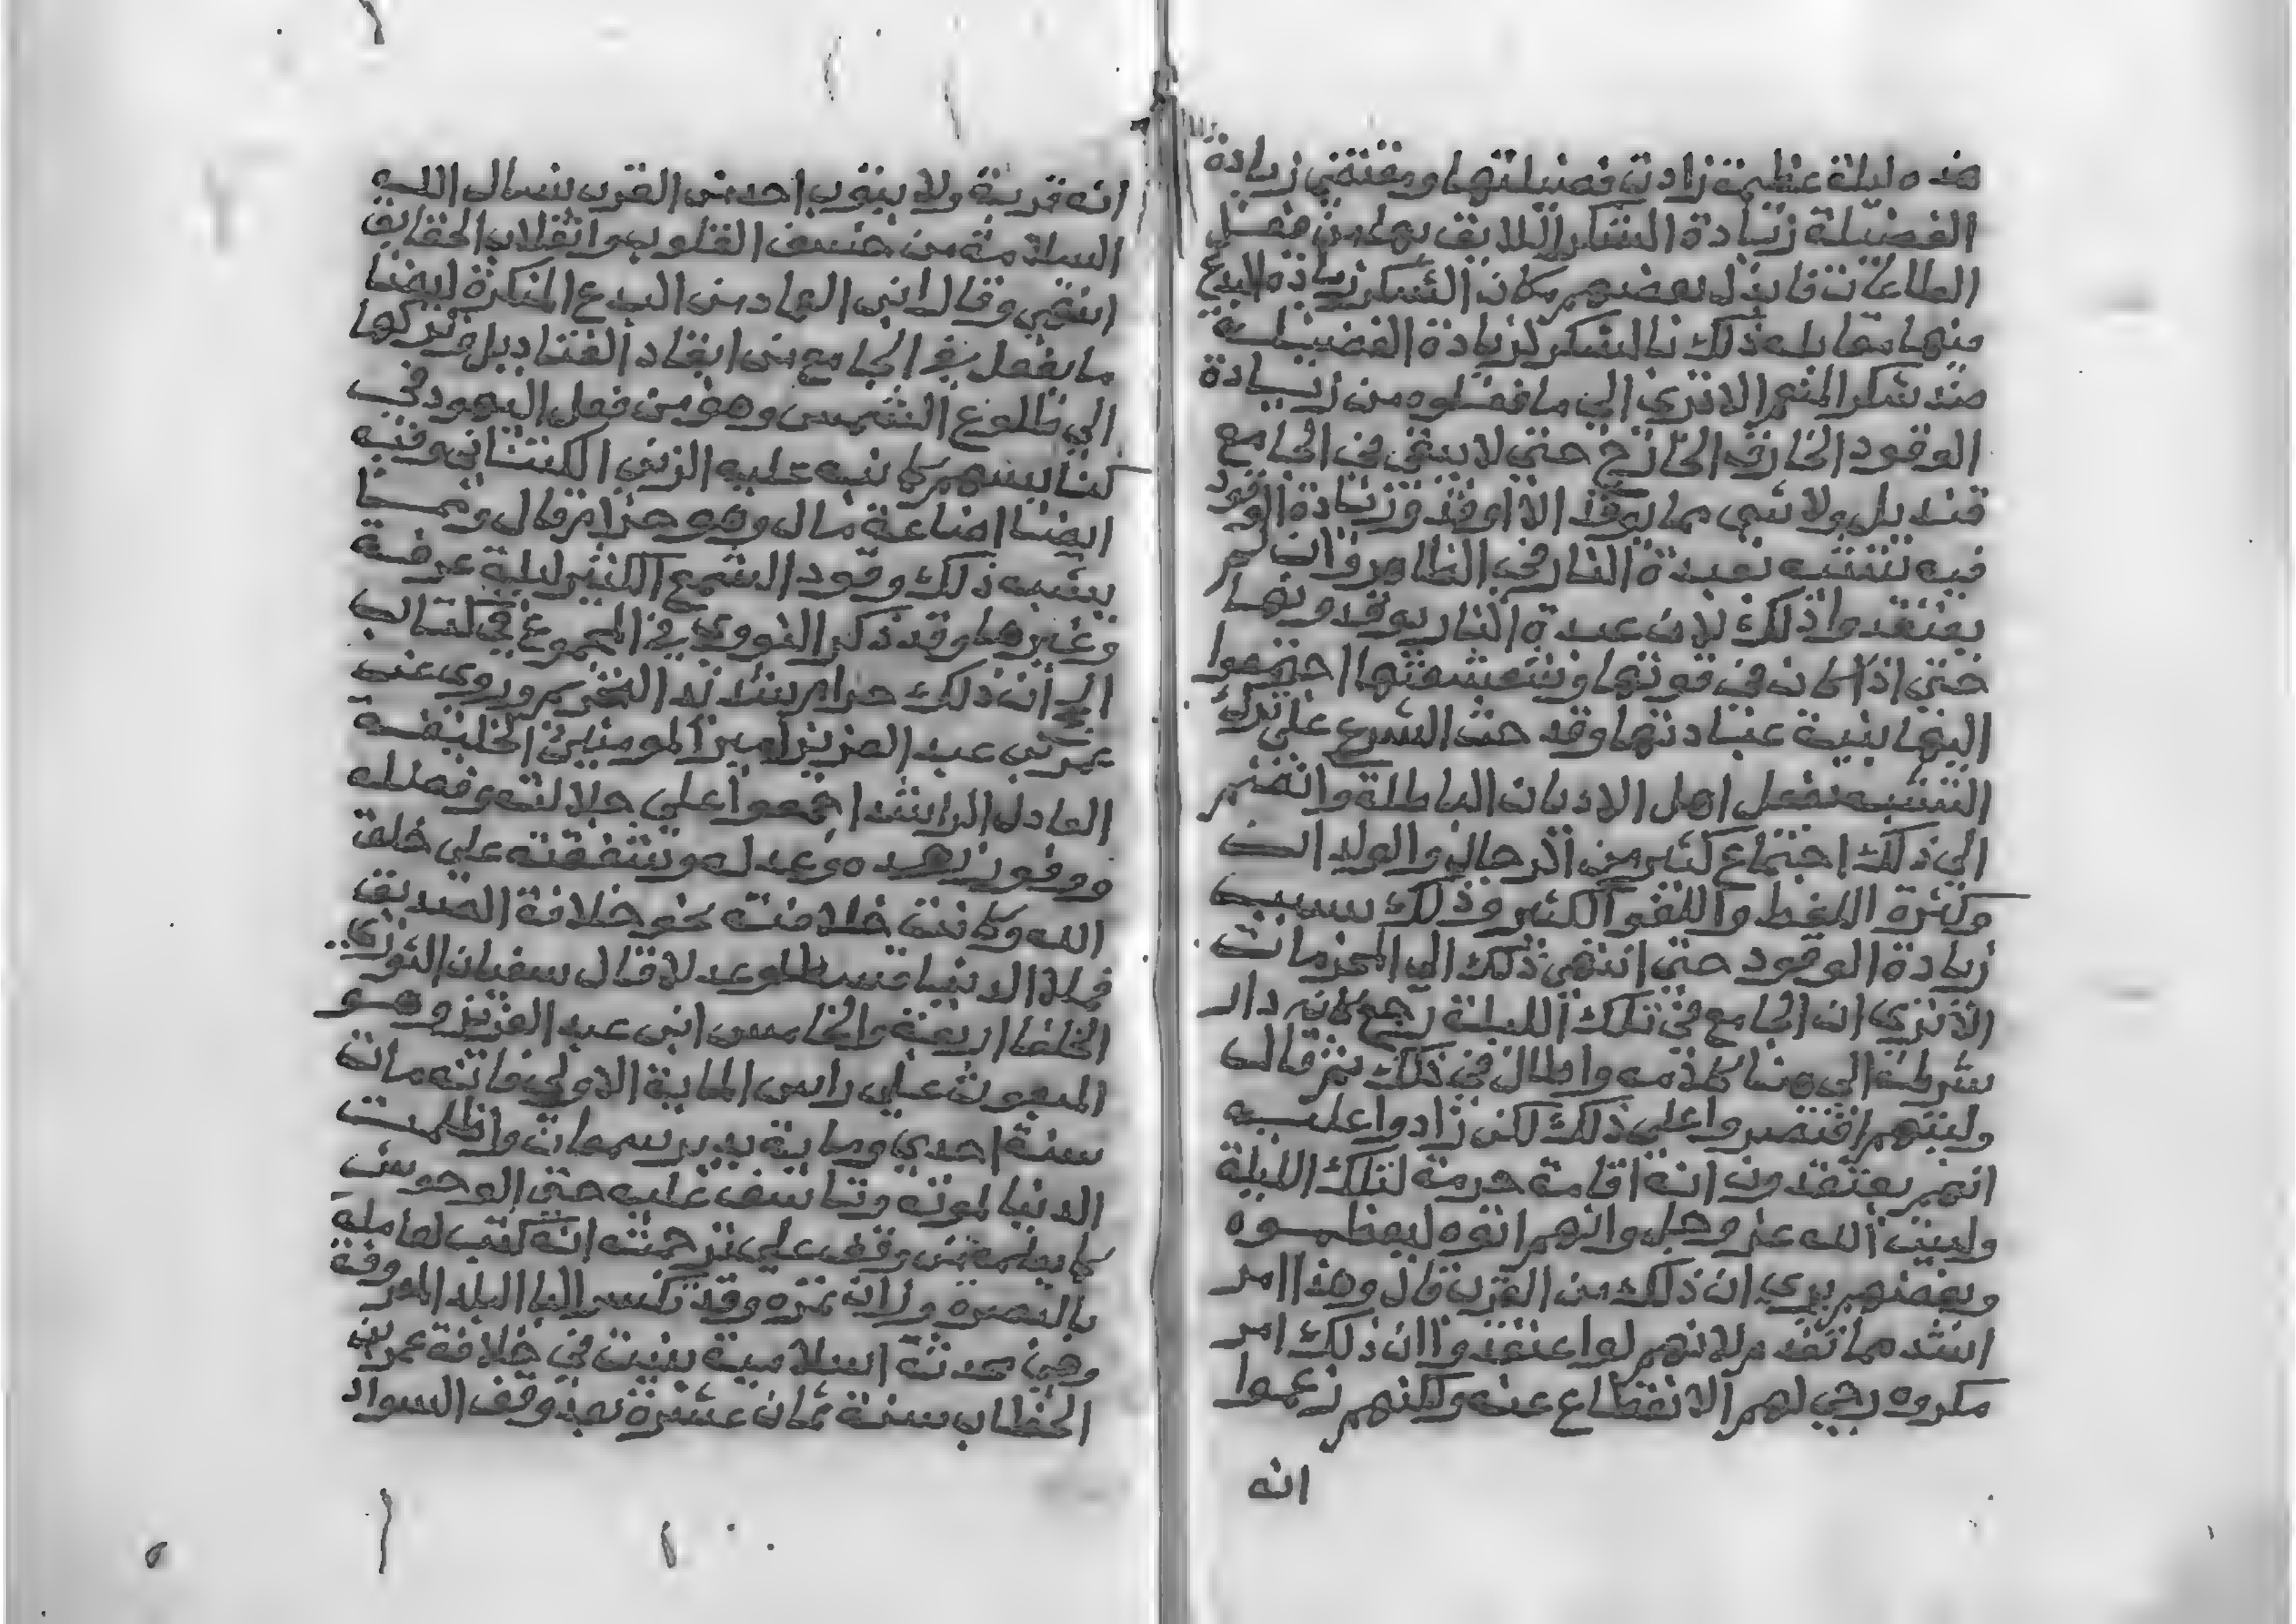 هذه ليلة عظيمة زادت فضيلتها ومقتضي زيادة
الفضيلة زيادة الشكر اللايق بها من فعل
الطاعات فابدل بعضهم مكان الشكر زيادة البدع
منها مقابله ذلك بالشكر لزيادة الفضيلة
ضد شكر المنعم الا تري الي ما فعلوه من زيادة
الوقود الخارق الخارج حتي لا يبقي في الجامع
قنديل ولا شي مما يوقد الا اوقد وزيادة الوقود
فيه تشبه بعبدة النار في الظاهر وان لم
يعتقدوا ذلك لان عبدة النار يوقدونها
حتي اذا كان في قوتها وشعشعتها اجتمعوا
اليها بنية عبادتها وقد حث الشرع علي ترك
التشبه بفعل اهل الاديان الباطلة وانضم
الي ذلك اجتماع كثير من الرجال والولدان
وكثرة اللغط واللغو الكثير وذلك بسبب
زيادة الوقود حتي انتهي ذلك الي المحرمات
الا تري ان الجامع في تلك الليلة رجع كانه دار
شرطة الي هنا كلامه واطال في ذلك ثم قال
وليتهم اقتصروا علي ذلك لكن زادوا عليه
انهم يعتقدون انه اقامة حرمة لتلك الليلة
ولبيت الله عز وجل وانهم اتوه ليعظموه
وبعضهم يري ان ذلك من القرب قال وهذا امر
اشد مما تقدم لانهم لو اعتقدوا ان ذلك امر
مكروه رجي لهم الانقطاع عنه ولكنهم زعموا
انه
انه قربة ولا يتوب احد من القرب نسال الله
السلامة من خسف القلوب وانقلاب الحقايق
انتهي وقال ابن العماد من البدع المنكرة ايضا
ما يفعل في الجامع من ايقاد القناديل وتركها
الي طلوع الشمس وهو من فعل اليهود في
كنايسهم كما نبه عليه الزين الكتناني وفيه
ايضا اضاعة مال وهو حرام قال ومما
يشبه ذلك وقود الشمع الكثير ليلة عرفة
وغيرها وقد ذكر النووي في المجموع في كتاب
الي ان ذلك حرام شديد التحريم وروي عن
عمر بن عبد العزيز امير المومنين الخليفة
العادل الراشد اجمعوا علي جلالته وفضله
ووفور زهده وعدله وشفقته علي خلق
الله وكانت خلافته نحو خلافة الصديق
فملا الدنيا قسطا وعدلا قال سفيان الثوري
الخلفا اربعة والخامس ابن عبد العزيز وهو
المبعوث علي راس الماية الاولي فانه مات
سنة احدي وماية بدير سمعان واظلمت
الدنيا لموته وتاسف عليه حتي الوحوش
كما يعلمه من وقف علي ترجمته انه كتب لعامله
بالبصرة ولان نمره وقد تكسر البا البلد المعروفة
وهي محدثة اسلامية بنيت في خلافة عمر بن
الخطاب سنة ثمان عشرة بعد وقف السواد